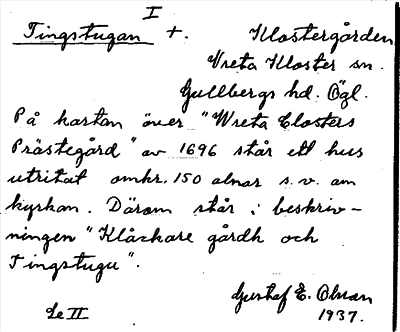 I
Tingstugan +. Klostergården
Vreta Kloster sn.
Gullbergs hd. Ögl.
På kartan över "Wreta Closters
Prästegård" av 1696 står ett hus
utritat omkr. 150 alnar s.v. om
kyrkan. Därom står i beskriv-
ningen "Klåckare gårdh och
Tingstugu".
Gustaf E. Olsson
Se II 1937.